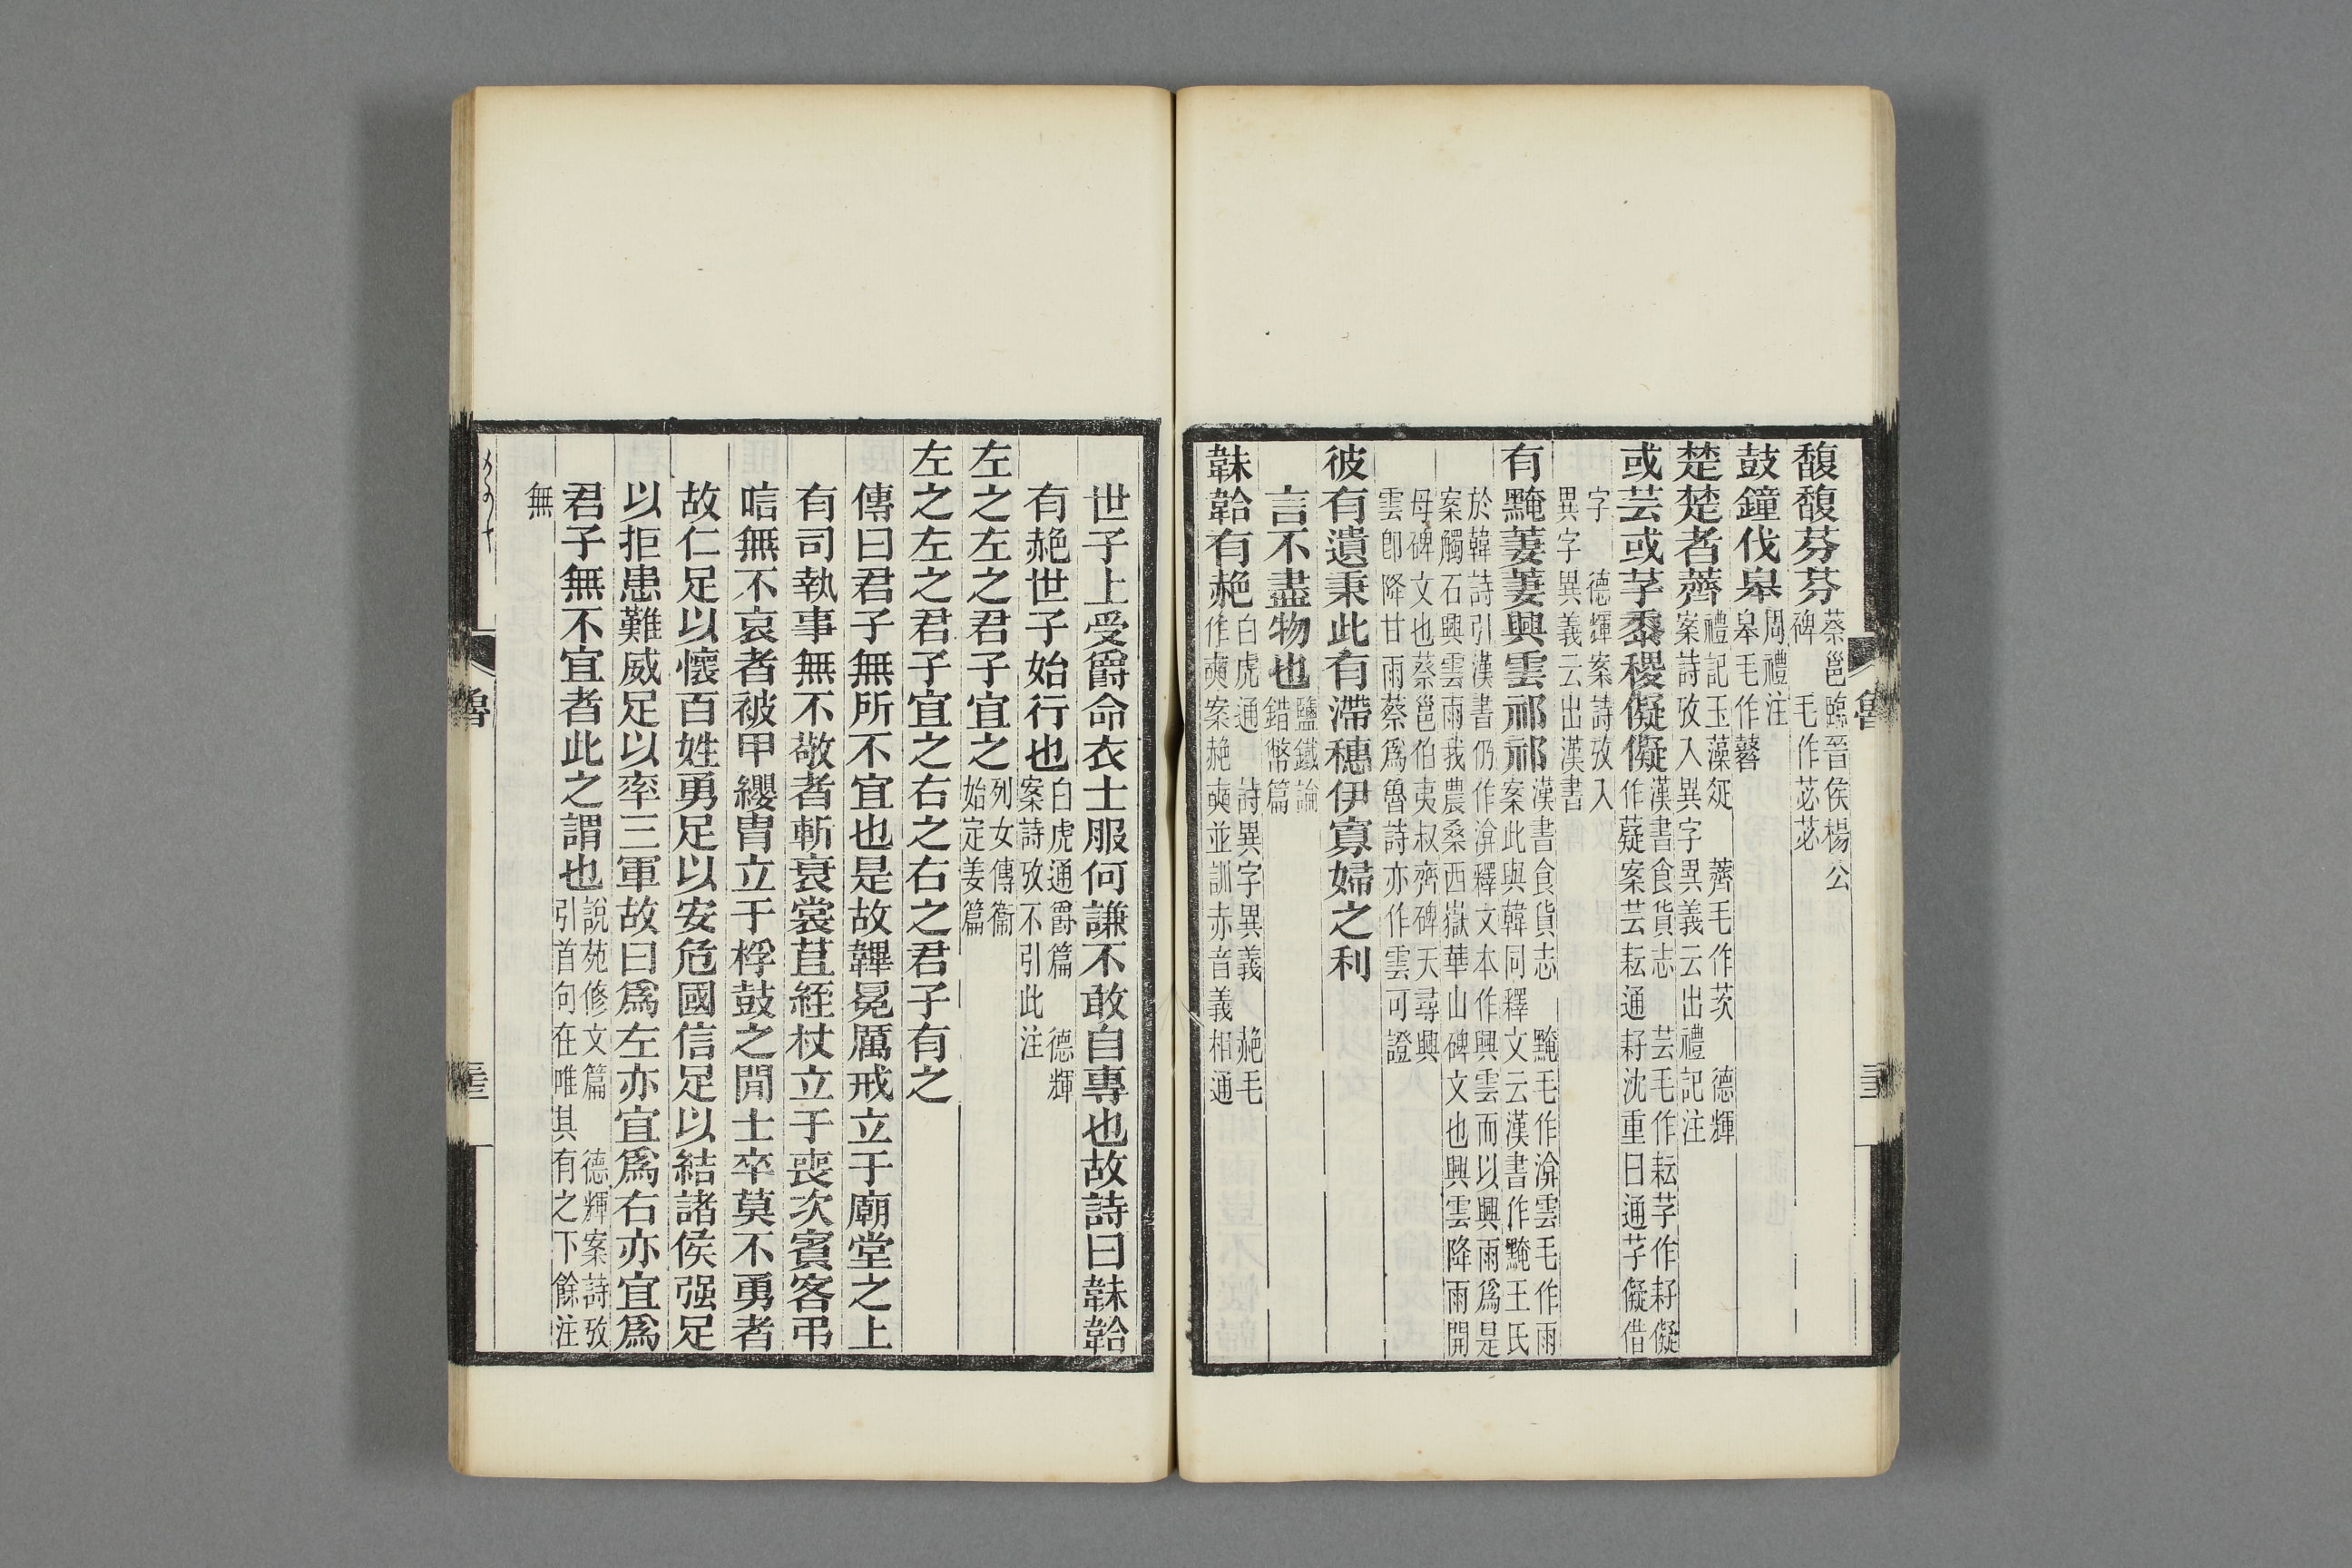 馥馥芬芬蔡邕臨晉侯楊公碑　毛作苾苾
鼓鐘伐皐周禮注皐毛作鼛
楚楚者薺禮記玉藻疏　薺毛作茨　德輝案詩攷入異字異義云出禮記注
或芸或芓黍稷儗儗漢書食貨志　芸毛作耘芓作耔儗作薿案芸耘通耔沈重曰通芓儗借
字　德輝案詩攷入異字異義云出漢書
有黤萋萋興雲祁祁漢書食貨志　黤毛作渰雲毛作雨案此與韓同釋文云漢書作黤王氏
於韓詩引漢書仍作渰釋文本作興雲而以興雨爲是案觸石興雲雨我農桑西嶽華山碑文也興雲降雨開
母碑文也蔡邕伯夷叔齊碑天尋興雲卽降甘雨蔡爲魯詩亦作雲可證
彼有遺秉此有滯穗伊寡婦之利
言不盡物也鹽鐵論錯幣篇
韎韐有赩白虎通　詩異字異義　赩毛作奭案赩奭並訓赤音義相通
魯
世子上受爵命衣士服何謙不敢自專也故詩曰韎韐
有赩世子始行也白虎通爵篇　德輝案詩攷不引此注
左之左之君子宜之列女傳衞始定姜篇
左之左之君子宜之右之右之君子有之
傳曰君子無所不宜也是故鞸冕厲戒立于廟堂之上
有司執事無不敬者斬衰裳苴絰杖立于喪次賓客弔
唁無不哀者被甲纓冑立于桴鼓之閒士卒莫不勇者
故仁足以懷百姓勇足以安危國信足以結諸侯强足
以拒患難威足以率三軍故曰爲左亦宜爲右亦宜爲
君子無不宜者此之謂也說苑修文篇　德輝案詩攷引首句在唯其有之下餘注
無
魯